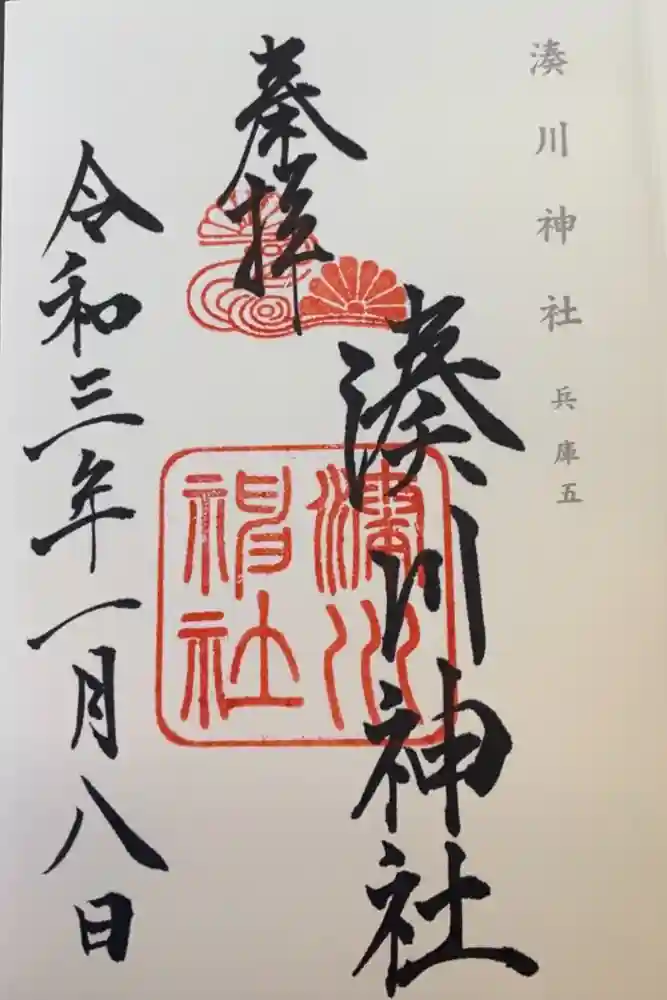 湊川神社 兵庫五
奉拝
湊川神社
湊川
神社
令和三年一月八日